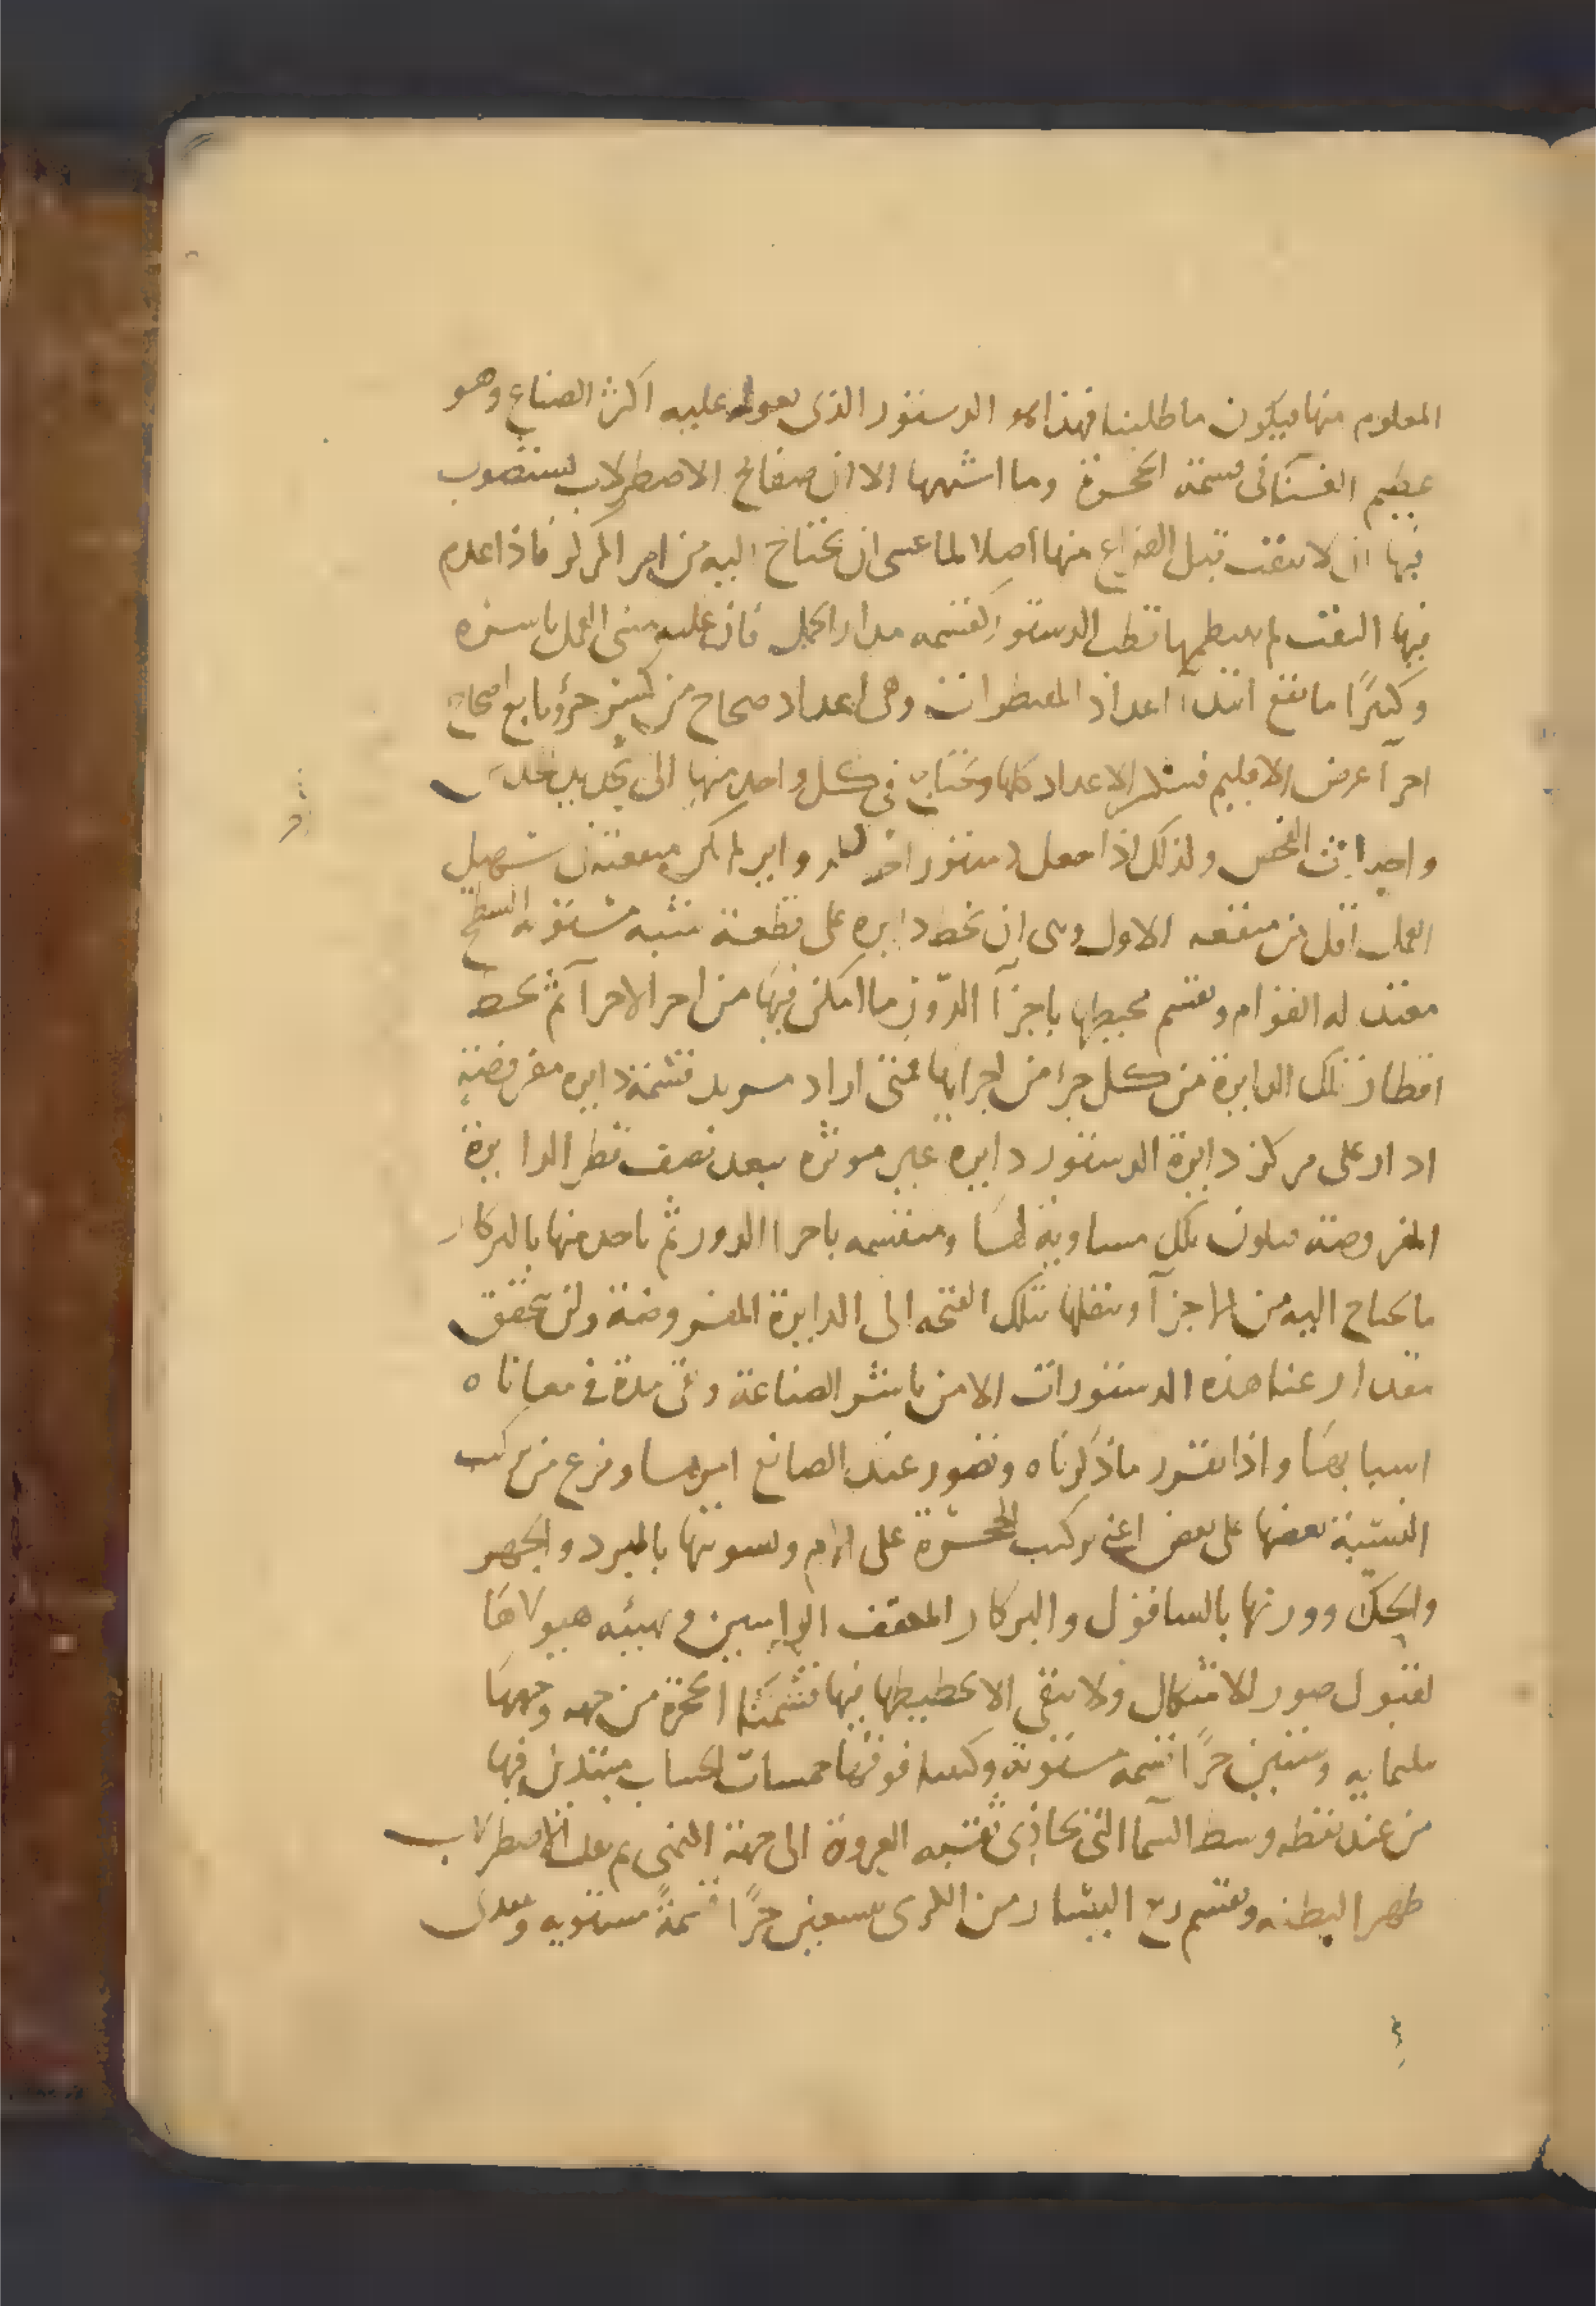 المعلوم منها فيكون ما طلبنا فهذا هو الدستور الذى يعول عليه اكثر الصناع وهو
عظيم الغنا فى قسمة الحجرة وما اشبهها الا ان صفائح الاصطرلاب يستصوب
فيها ان لا تثقب قبل الفراغ منها اصلا لما عسى ان يحتاج اليه من امر المركز فاذا عدم
فيها الثقب لم قطب الدستور مدار الحمل فان عليه مبنى العمل باسره
وكثيرًا ما تقع ابتدآ اعداد المقنطرات وهى اعداد صحاح من جزؤ تابع
اجزآ عرض الاقليم الاعداد كلها ويحتاج فى كل واحد منها الى
ولذلك اذا جعل دستور اخر منفعته فى تسهيل
العمل اقل من منفعه الاول وهى ان يخط دايره على قطعة شبه مستوية السطح
معتدله القوام ويقسم محيطها باجزآ الدور ما امكن فيها من اجزا الاجزآ ثم يخط
اقطار تلك الدايرة من كل جزء من اجزايها فمتى اراد قسمة دايره مفروضة
ادار على مركز دايرة الدستور دايره غير موثره ببعد نصف قطر الدايرة
المفروضة فيكون تلك مساوية لها ومنقسمه باجزا الدور ثم ياخذ منها بالبركار
ما يحتاج اليه من الاجزآ وينقلها بتلك الفتحه الى الدايرة المفروضة ولن يتحقق
مقدار غنا هذه الدستورات الا من باشر الصناعة وبقى مدة فى معاناه
اسبابها واذا تقرر ما ذكرناه وتصور عند الصانع امرها وفرغ من تركيب
النسبة بعضها على بعض اعنى تركيب الحجرة على الام وتسويتها بالمبرد والجهر
والحك ووزنها بالشاقول والبركار المعقف الراسين وتهيئه هيولاها
لقبول صور الاشكال ولا يبقى الا تخطيطها فيها قسمنا الحجرة من جهه وجهها
بثلثمايه وستين جزًا قسمه مستوية وكتبنا فوقها خمسات الحساب مبتدين فيها
من عند نقطه وسط السما التى تحاذى ثقبه العروة الى جهة اليمنى ثم نقلب الاصطرلاب
ظهر البطنه ونقسم ربع اليسار من الكرسى بتسعين جزًا قسمةً مستويه ونبتدى